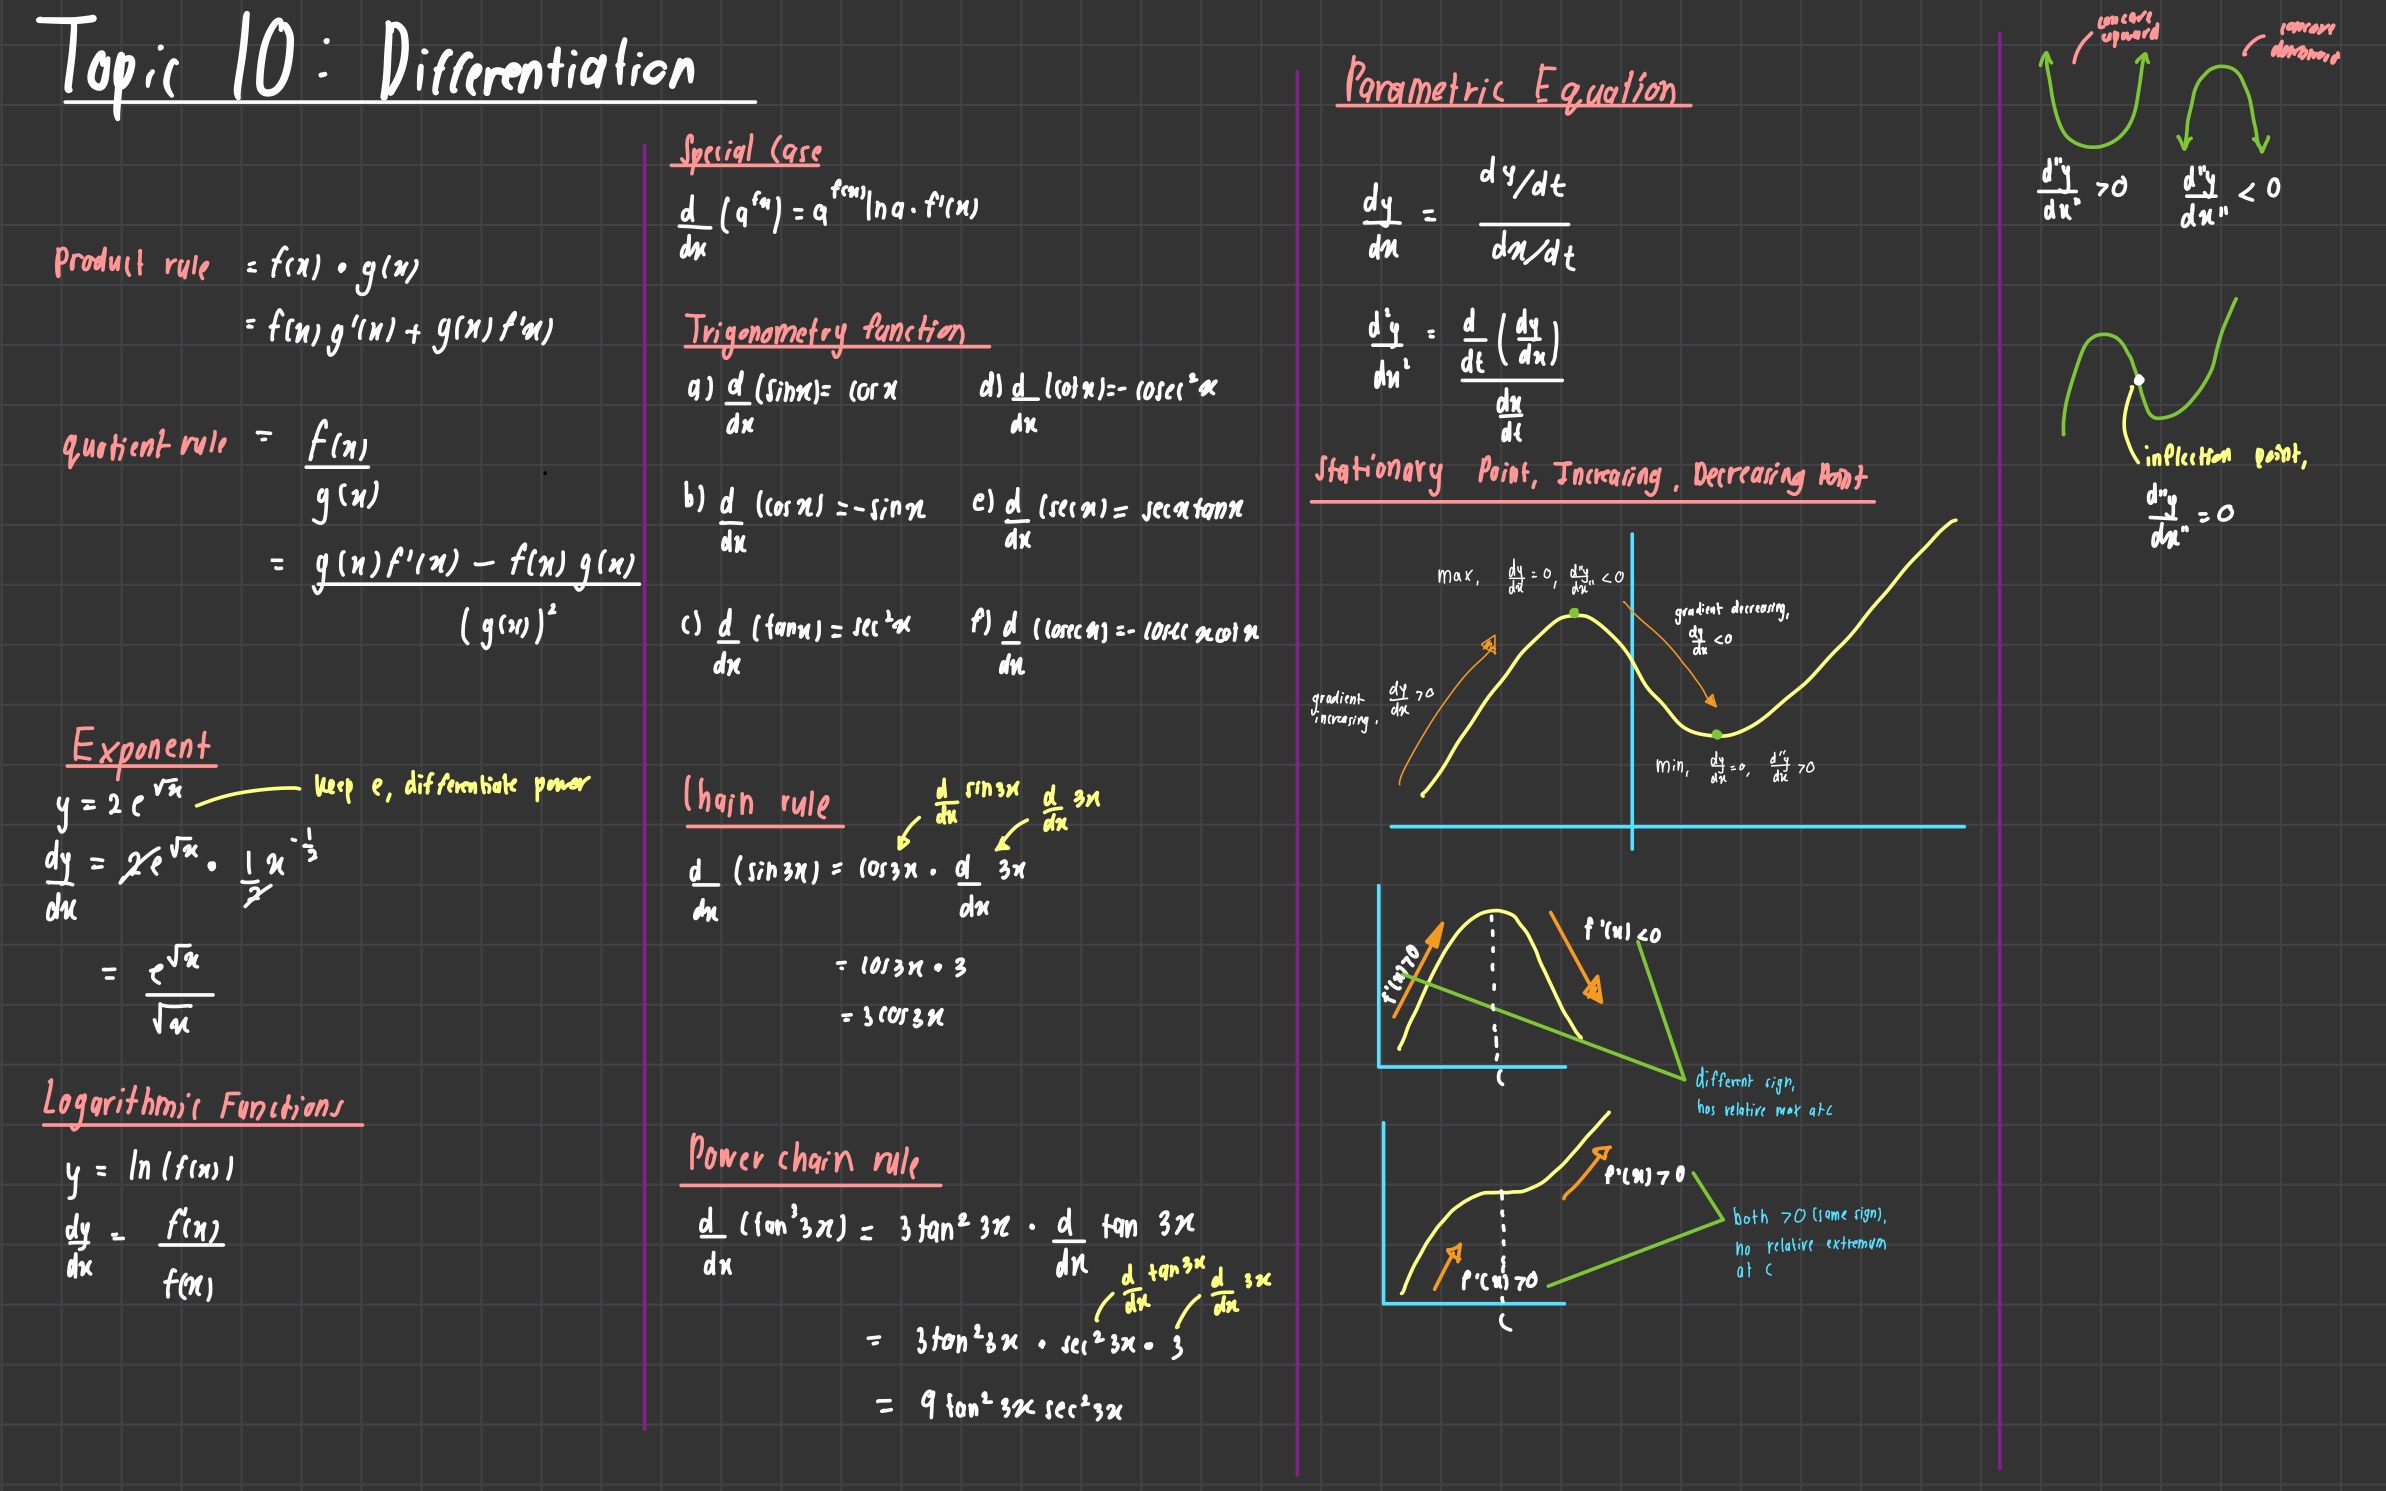 Topic 10: Differentiation
product rule = f(x) • g(x)
= f(x) g'(x) + g(x) f'x)
quotient rule = f(x) / g(x)
= g(x) f'(x) - f(x) g(x) / (g(x))²
Exponent
y = 2e^√x
keep e, differentiate power
dy/dx = 2e^√x • 1/2 x^-1/2
= e^√x / √x
Logarithmic Functions
y = ln(f(x))
dy/dx = f'(x) / f(x)
Special Case
d/dx (a^f(x)) = a^f(x) ln a · f'(x)
Trigonometry function
a) d/dx (sinx) = cosx
d) d/dx (cotx) = -cosec²x
b) d/dx (cosx) = -sinx
e) d/dx (secx) = secxtanx
c) d/dx (tanx) = sec²x
f) d/dx (cosecx) = -cosecxcotx
Chain rule
d/dx sin3x
d/dx 3x
d/dx (sin3x) = cos3x · d/dx 3x
= cos3x • 3
= 3cos3x
Power chain rule
d/dx (tan³3x) = 3tan²3x · d/dx tan 3x
d/dx tan3x
d/dx 3x
= 3tan²3x • sec²3x • 3
= 9tan²3x sec²3x
Parametric Equation
dy/dx = dy/dt / dx/dt
d²y/dx² = d/dt (dy/dx) / dx/dt
Stationary Point, Increasing, Decreasing Point
max, dy/dx = 0, d"y/dx" < 0
gradient decreasing,
dy/dx < 0
gradient increasing, dy/dx > 0
min, dy/dx = 0, d"y/dx > 0
f'(x) > 0
f'(x) < 0
c
different sign,
has relative max at c
f'(x) > 0
f'(x) > 0
c
both > 0 (same sign),
no relative extremum
at c
concave
upward
concave
downward
d"y/dx" > 0
d"y/dx" < 0
inflection point,
d"y/dx" = 0